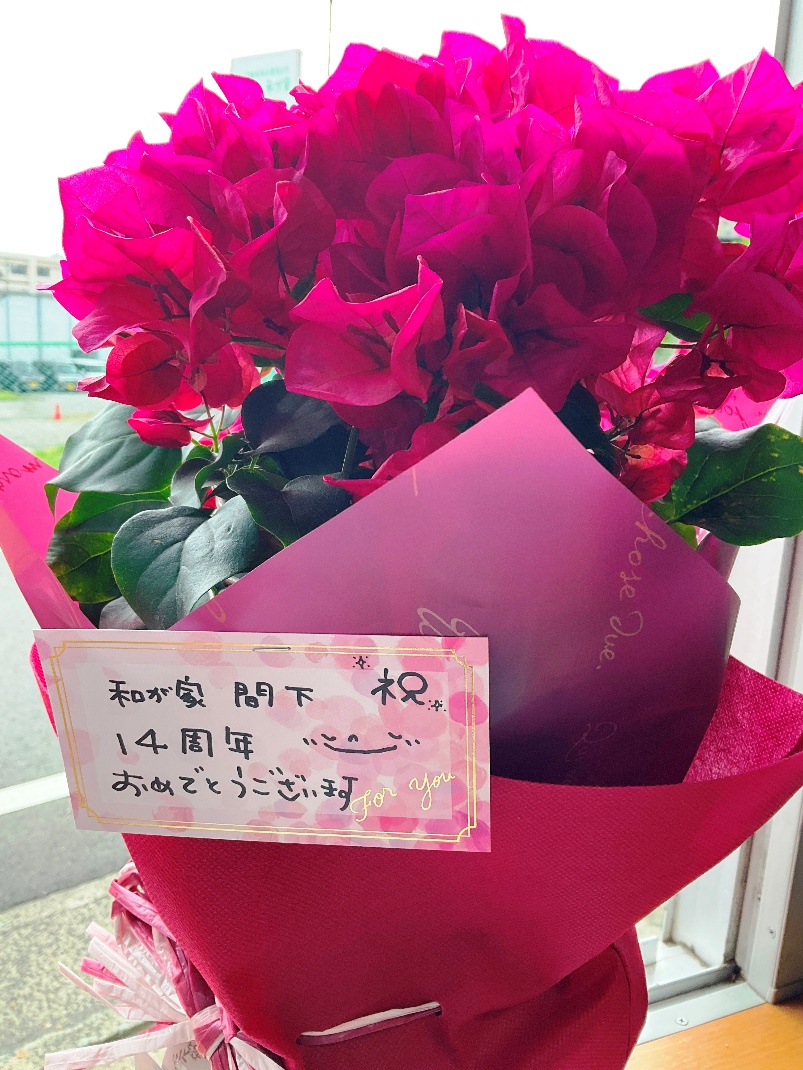 和が家 間下 祝
14周年
おめでとうございます
For You
chose Due.